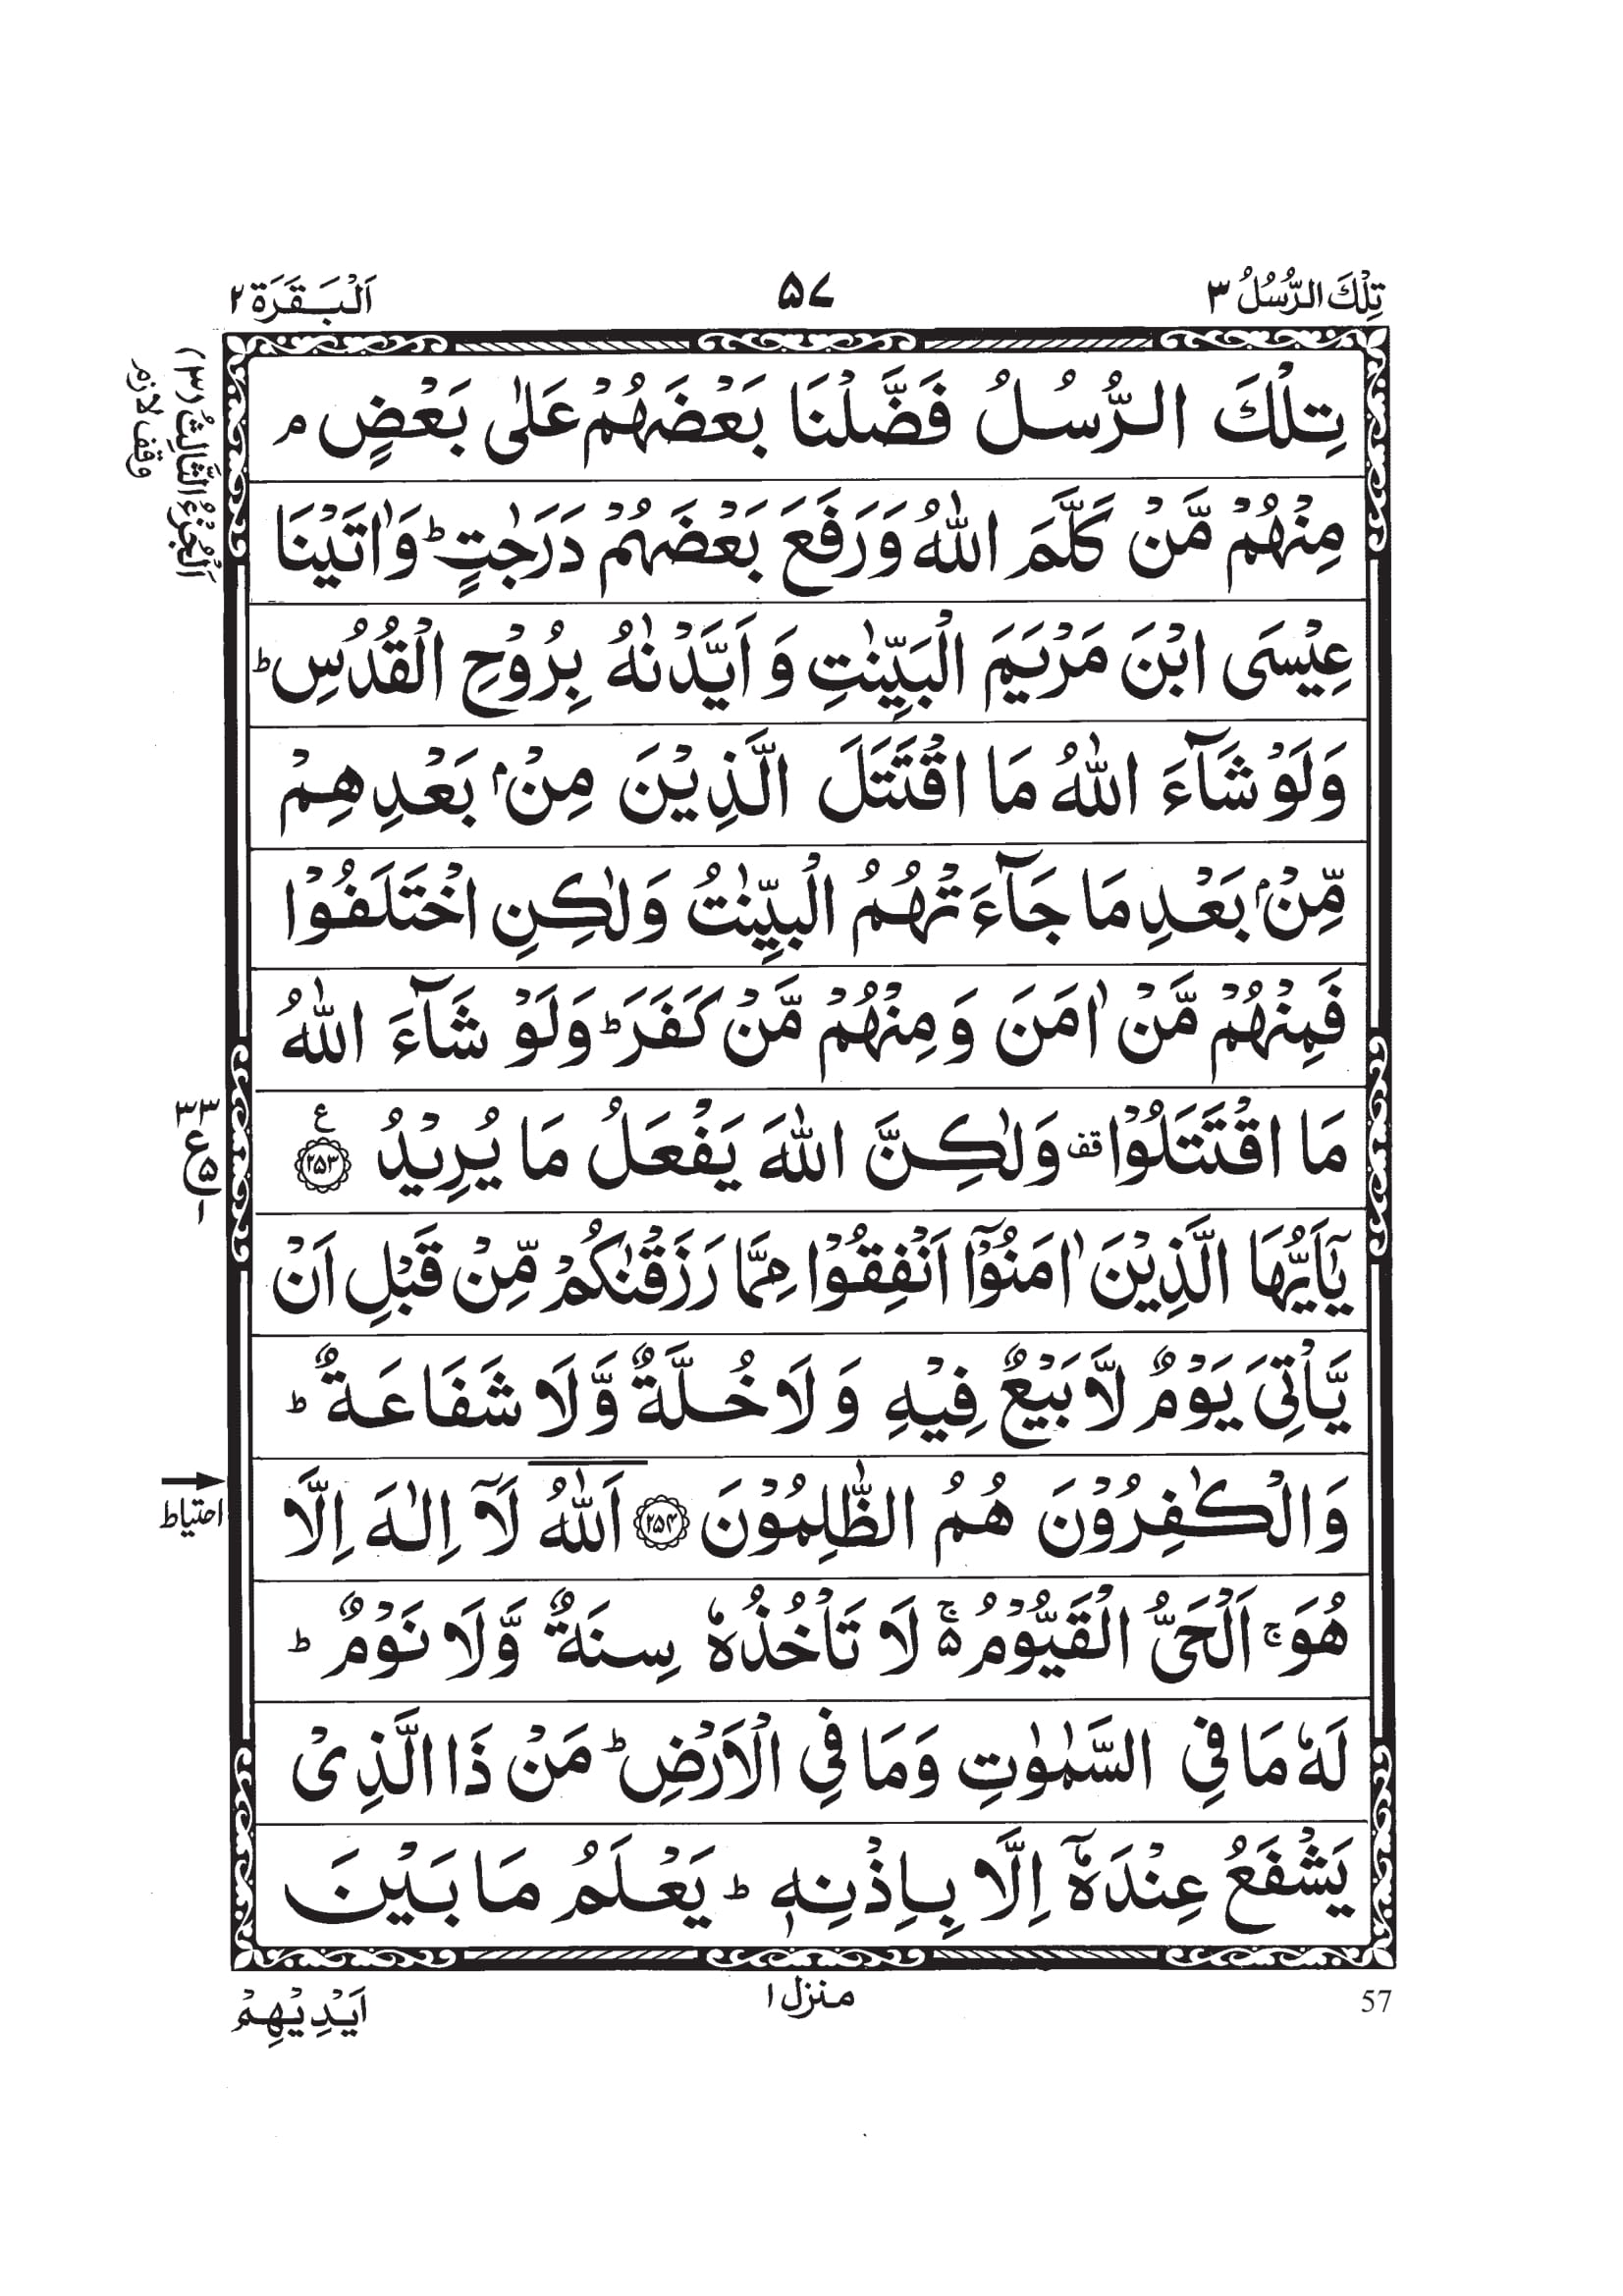 تِلْكَ الرُّسُلُ ٣
۵۷
اَلْبَقَرَة ٢
اَلْجُزْءُ الثَّالِثُ (٣)
وقف لازم
تِلْكَ الرُّسُلُ فَضَّلْنَا بَعْضَهُمْ عَلٰى بَعْضٍ ۘ
مِنْهُمْ مَّنْ كَلَّمَ اللّٰهُ وَرَفَعَ بَعْضَهُمْ دَرَجٰتٍ ؕ وَاٰتَيْنَا
عِيْسَى ابْنَ مَرْيَمَ الْبَيِّنٰتِ وَ اَيَّدْنٰهُ بِرُوْحِ الْقُدُسِ ؕ
وَلَوْ شَآءَ اللّٰهُ مَا اقْتَتَلَ الَّذِيْنَ مِنْۢ بَعْدِهِمْ
مِّنْۢ بَعْدِ مَا جَآءَتْهُمُ الْبَيِّنٰتُ وَلٰكِنِ اخْتَلَفُوْا
فَمِنْهُمْ مَّنْ اٰمَنَ وَمِنْهُمْ مَّنْ كَفَرَ ؕ وَلَوْ شَآءَ اللّٰهُ
مَا اقْتَتَلُوْا قف وَلٰكِنَّ اللّٰهَ يَفْعَلُ مَا يُرِيْدُ ﴿۲۵۳﴾ ع
٣٣ ع ۵ ١
يٰۤاَيُّهَا الَّذِيْنَ اٰمَنُوْۤا اَنْفِقُوْا مِمَّا رَزَقْنٰكُمْ مِّنْ قَبْلِ اَنْ
يَّاْتِىَ يَوْمٌ لَّا بَيْعٌ فِيْهِ وَ لَا خُلَّةٌ وَّلَا شَفَاعَةٌ ؕ
وَالْكٰفِرُوْنَ هُمُ الظّٰلِمُوْنَ ﴿۲۵۴﴾ اَللّٰهُ لَاۤ اِلٰهَ اِلَّا
احتياط
هُوَ ۚ اَلْحَىُّ الْقَيُّوْمُ ۵ۚ لَا تَاْخُذُهٗ سِنَةٌ وَّلَا نَوْمٌ ؕ
لَهٗ مَا فِى السَّمٰوٰتِ وَمَا فِى الْاَرْضِ ؕ مَنْ ذَا الَّذِىْ
يَشْفَعُ عِنْدَهٗۤ اِلَّا بِاِذْنِهٖ ؕ يَعْلَمُ مَا بَيْنَ
57
منزل ١
اَيْدِيْهِمْ